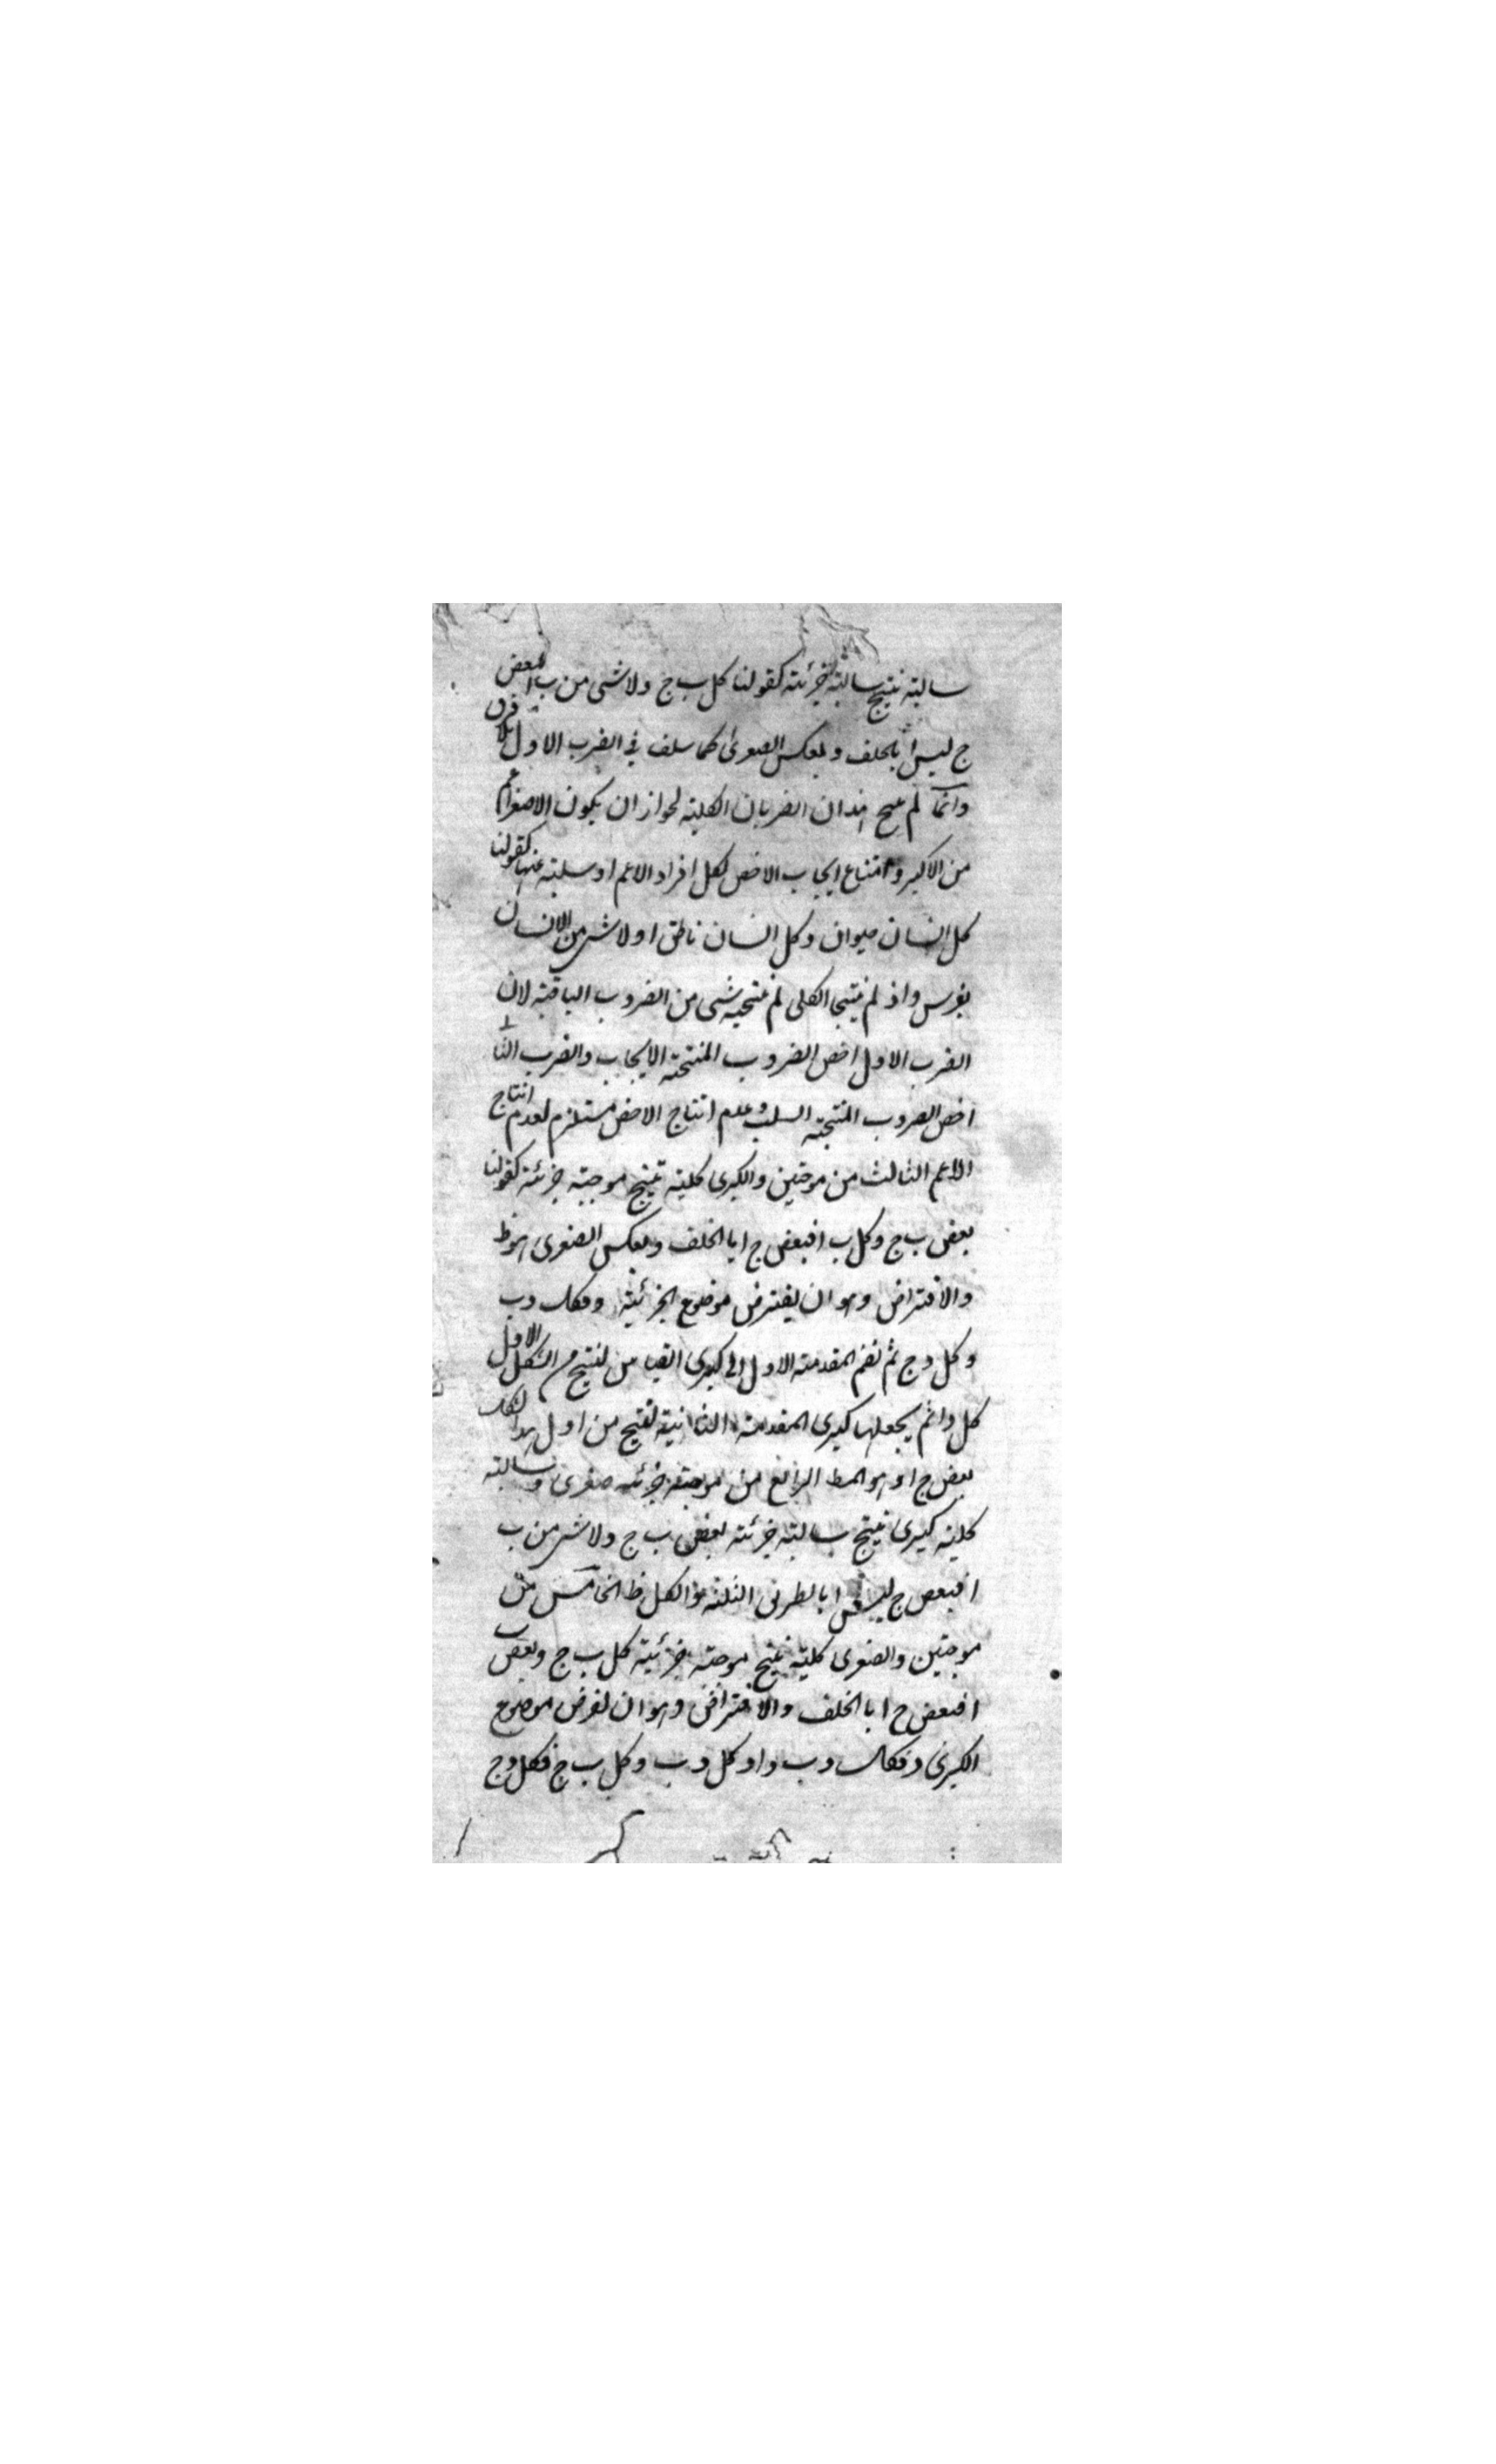 سالبته ينتج سالبته جزئته كقولنا كل ب ج ولا شى من ب ا فبعض
ج ليس ا بالخلف وبعكس الصغرى كما سلف في الضرب الاول بلا فرق
وانما لم ينتج هذان الضربان الكليته لجواز ان يكون الاصغر اعم
من الاكبر وامتناع ايجاب الاخص لكل افراد الاعم او سلبته عنها كقولنا
كل انسان حيوان وكل انسان ناطق او لا شى من الانسان
بفرس واذ لم ينتجا الكلى لم ينتجه شى من الضروب الباقته لان
الضرب الاول اخص الضروب المنتجته الايجاب والضرب الثا
اخص الضروب المنتجته السلب وعدم انتاج الاخص مستلزم لعدم انتاج
الاعم الثالث من موجبتين والكبرى كليته تنتج موجبته جزئته كقولنا
بعض ب ج وكل ب ا فبعض ج ا بالخلف وبعكس الصغرى وهو ظ
والافتراض وهو ان يفترض موضوع الجزئيته د فكل د ب
وكل د ج ثم نضم المقدمته الاول الى كبرى القياس لينتج من الشكل الاول
كل د ا ثم يجعلها كبرى المقدمته الثانيته لينتج من اول هذا الشكل
بعض ج ا وهو المط الرابع من موجبته جزئته صغرى وسالبته
كليته كبرى ينتج سالبته جزئته بعض ب ج ولا شى من ب
ا فبعض ج ليس ا بالطرق الثلثه والكل ظ الخامس من
موجبتين والصغرى كليته ينتج موجبته جزئيته كل ب ج وبعض ب
ا فبعض ج ا بالخلف والافتراض وهو ان نفرض موضوع
الكبرى د فكل د ب وا و كل د ب وكل ب ج فكل د ج